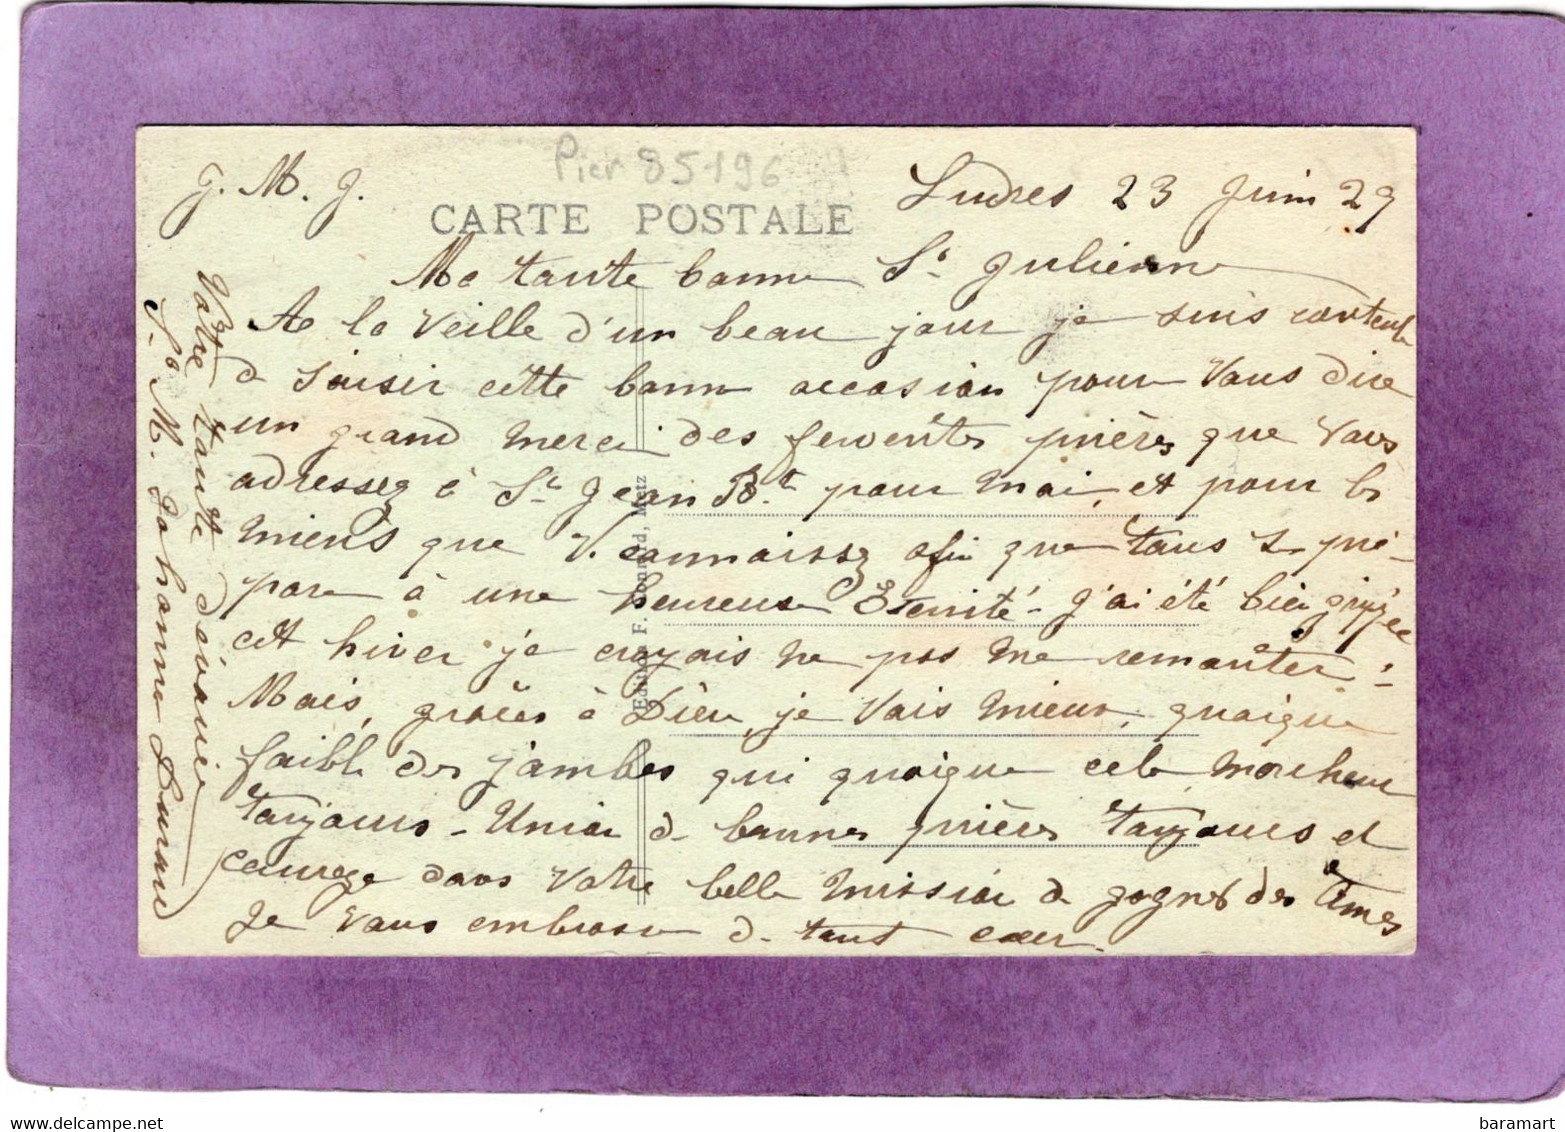 Pier 85196
J. M. J.
Ludres 23 Juin 29
CARTE POSTALE
Ma tante bonne Sr Julienne
A la veille d'un beau jour je suis contente
de saisir cette bonne occasion pour Vous dire
un grand merci des ferventes prières que Vous
adressez à St Jean Bt. pour moi, et pour les
miens que V. connaissez afin que tous se pré-
pare à une heureuse Éternité - J'ai été bien grippée
cet hiver je croyais ne pas me remonter :
Mais, grâces à Dieu, je Vais mieux, quoique
faible des jambes qui quoique cela marchent
toujours - Union de bonnes prières toujours et
courage dans Votre belle mission de gagner des âmes
Je Vous embrasse de tout cœur.
Votre tante dévouée
Sr M. Johanne Durand
Edition F. Metz
baramart
www.delcampe.net